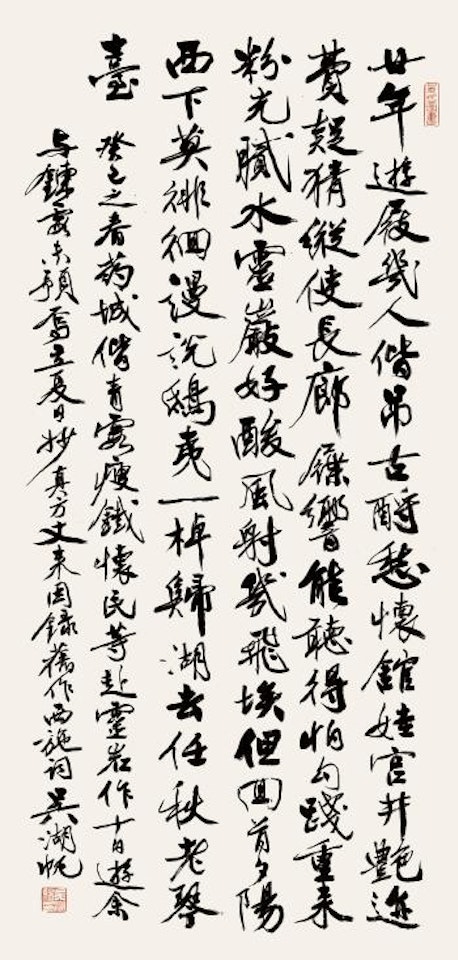 廿年遊屐幾人偕吊古酹愁懷館娃宮井艷迹
費疑猜縱使長廊屧響能聽得怕勾踐重來
粉光膩水靈巖好酸風射幾飛埃但回首夕陽
西下莫徘徊謾說鴟夷一棹歸湖去任秋老琴
臺 癸巳之春葯城偕青霞瘦鐵懷民等赴靈岩作十日遊余
与鍊霞未預焉立夏日妙真方丈來因錄舊作西施詞 吳湖帆